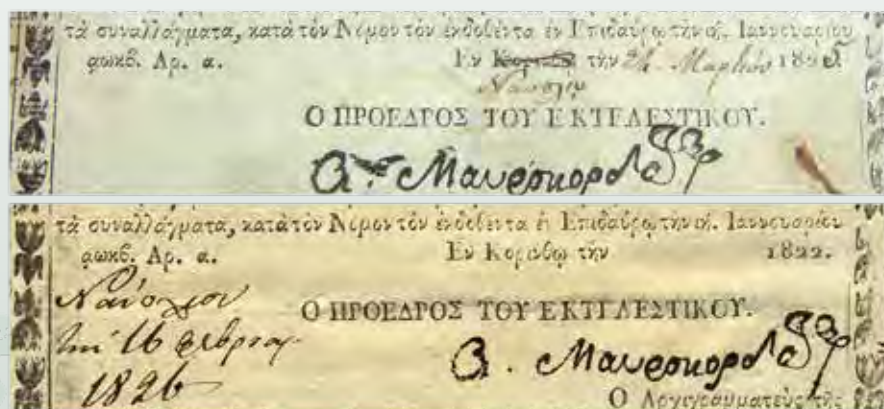 τὰ συναλλάγματα, κατὰ τὸν Νόμον τὸν ἐκδοθέντα ἐν Επιδαύρῳ τὴν ιή. Ιαννουαρίου
αωκβ. Αρ. α. Εν Κορίνθῳ τὴν 24 Μαρτίου 1825
Ναύπλιον
Ο ΠΡΟΕΔΡΟΣ ΤΟΥ ΕΚΤΕΛΕΣΤΙΚΟΥ.
Α. Μαυροκορδάτος
τὰ συναλλάγματα, κατὰ τὸν Νόμον τὸν ἐκδοθέντα ἐν Επιδαύρῳ τὴν ιή. Ιαννουαρίου
αωκβ. Αρ. α. Εν Κορίνθῳ τὴν 1822.
Ναύπλιον
Ο ΠΡΟΕΔΡΟΣ ΤΟΥ ΕΚΤΕΛΕΣΤΙΚΟΥ.
τὴν 16 φεβρουαρ.
Α. Μαυροκορδάτος
1826
Ο Αρχιγραμματεὺς τῆς